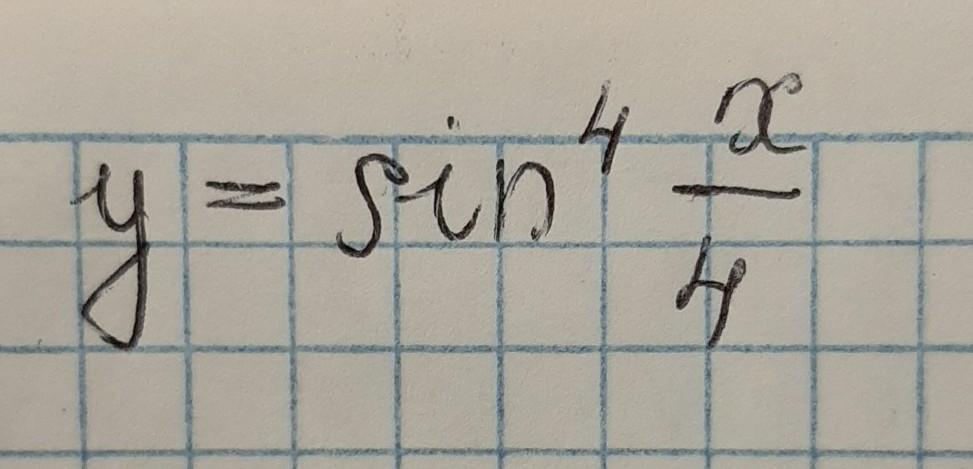 y = sin⁴ x/4